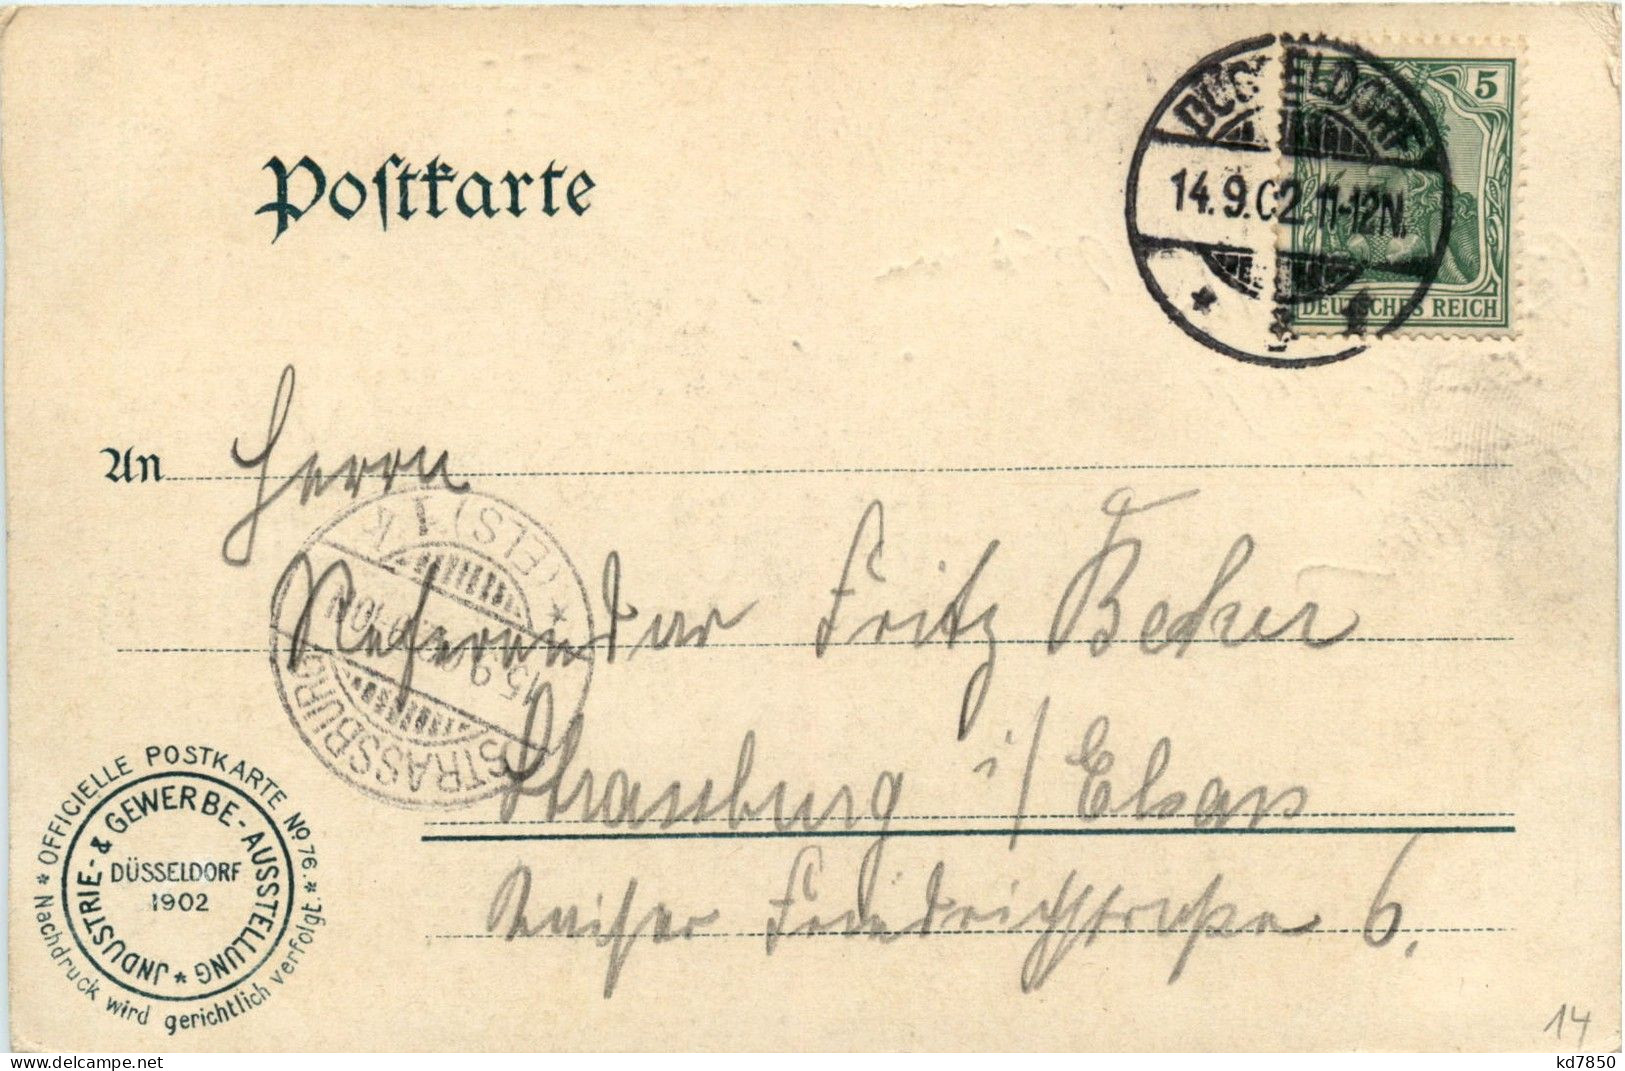 Postkarte
DÜSSELDORF
14.9.02. 11-12N.
5
5
DEUTSCHES REICH
An Herrn
Referendar Fritz Becker
Strassburg i/ Elsass
Kaiser Friedrichstrasse 6.
STRASSBURG
(ELS) 1 K
15.9. 9-10N
* OFFICIELLE POSTKARTE No 76. *
Nachdruck wird gerichtlich verfolgt.
JNDUSTRIE- & GEWERBE-AUSSTELLUNG *
DÜSSELDORF
1902
14
kd7850